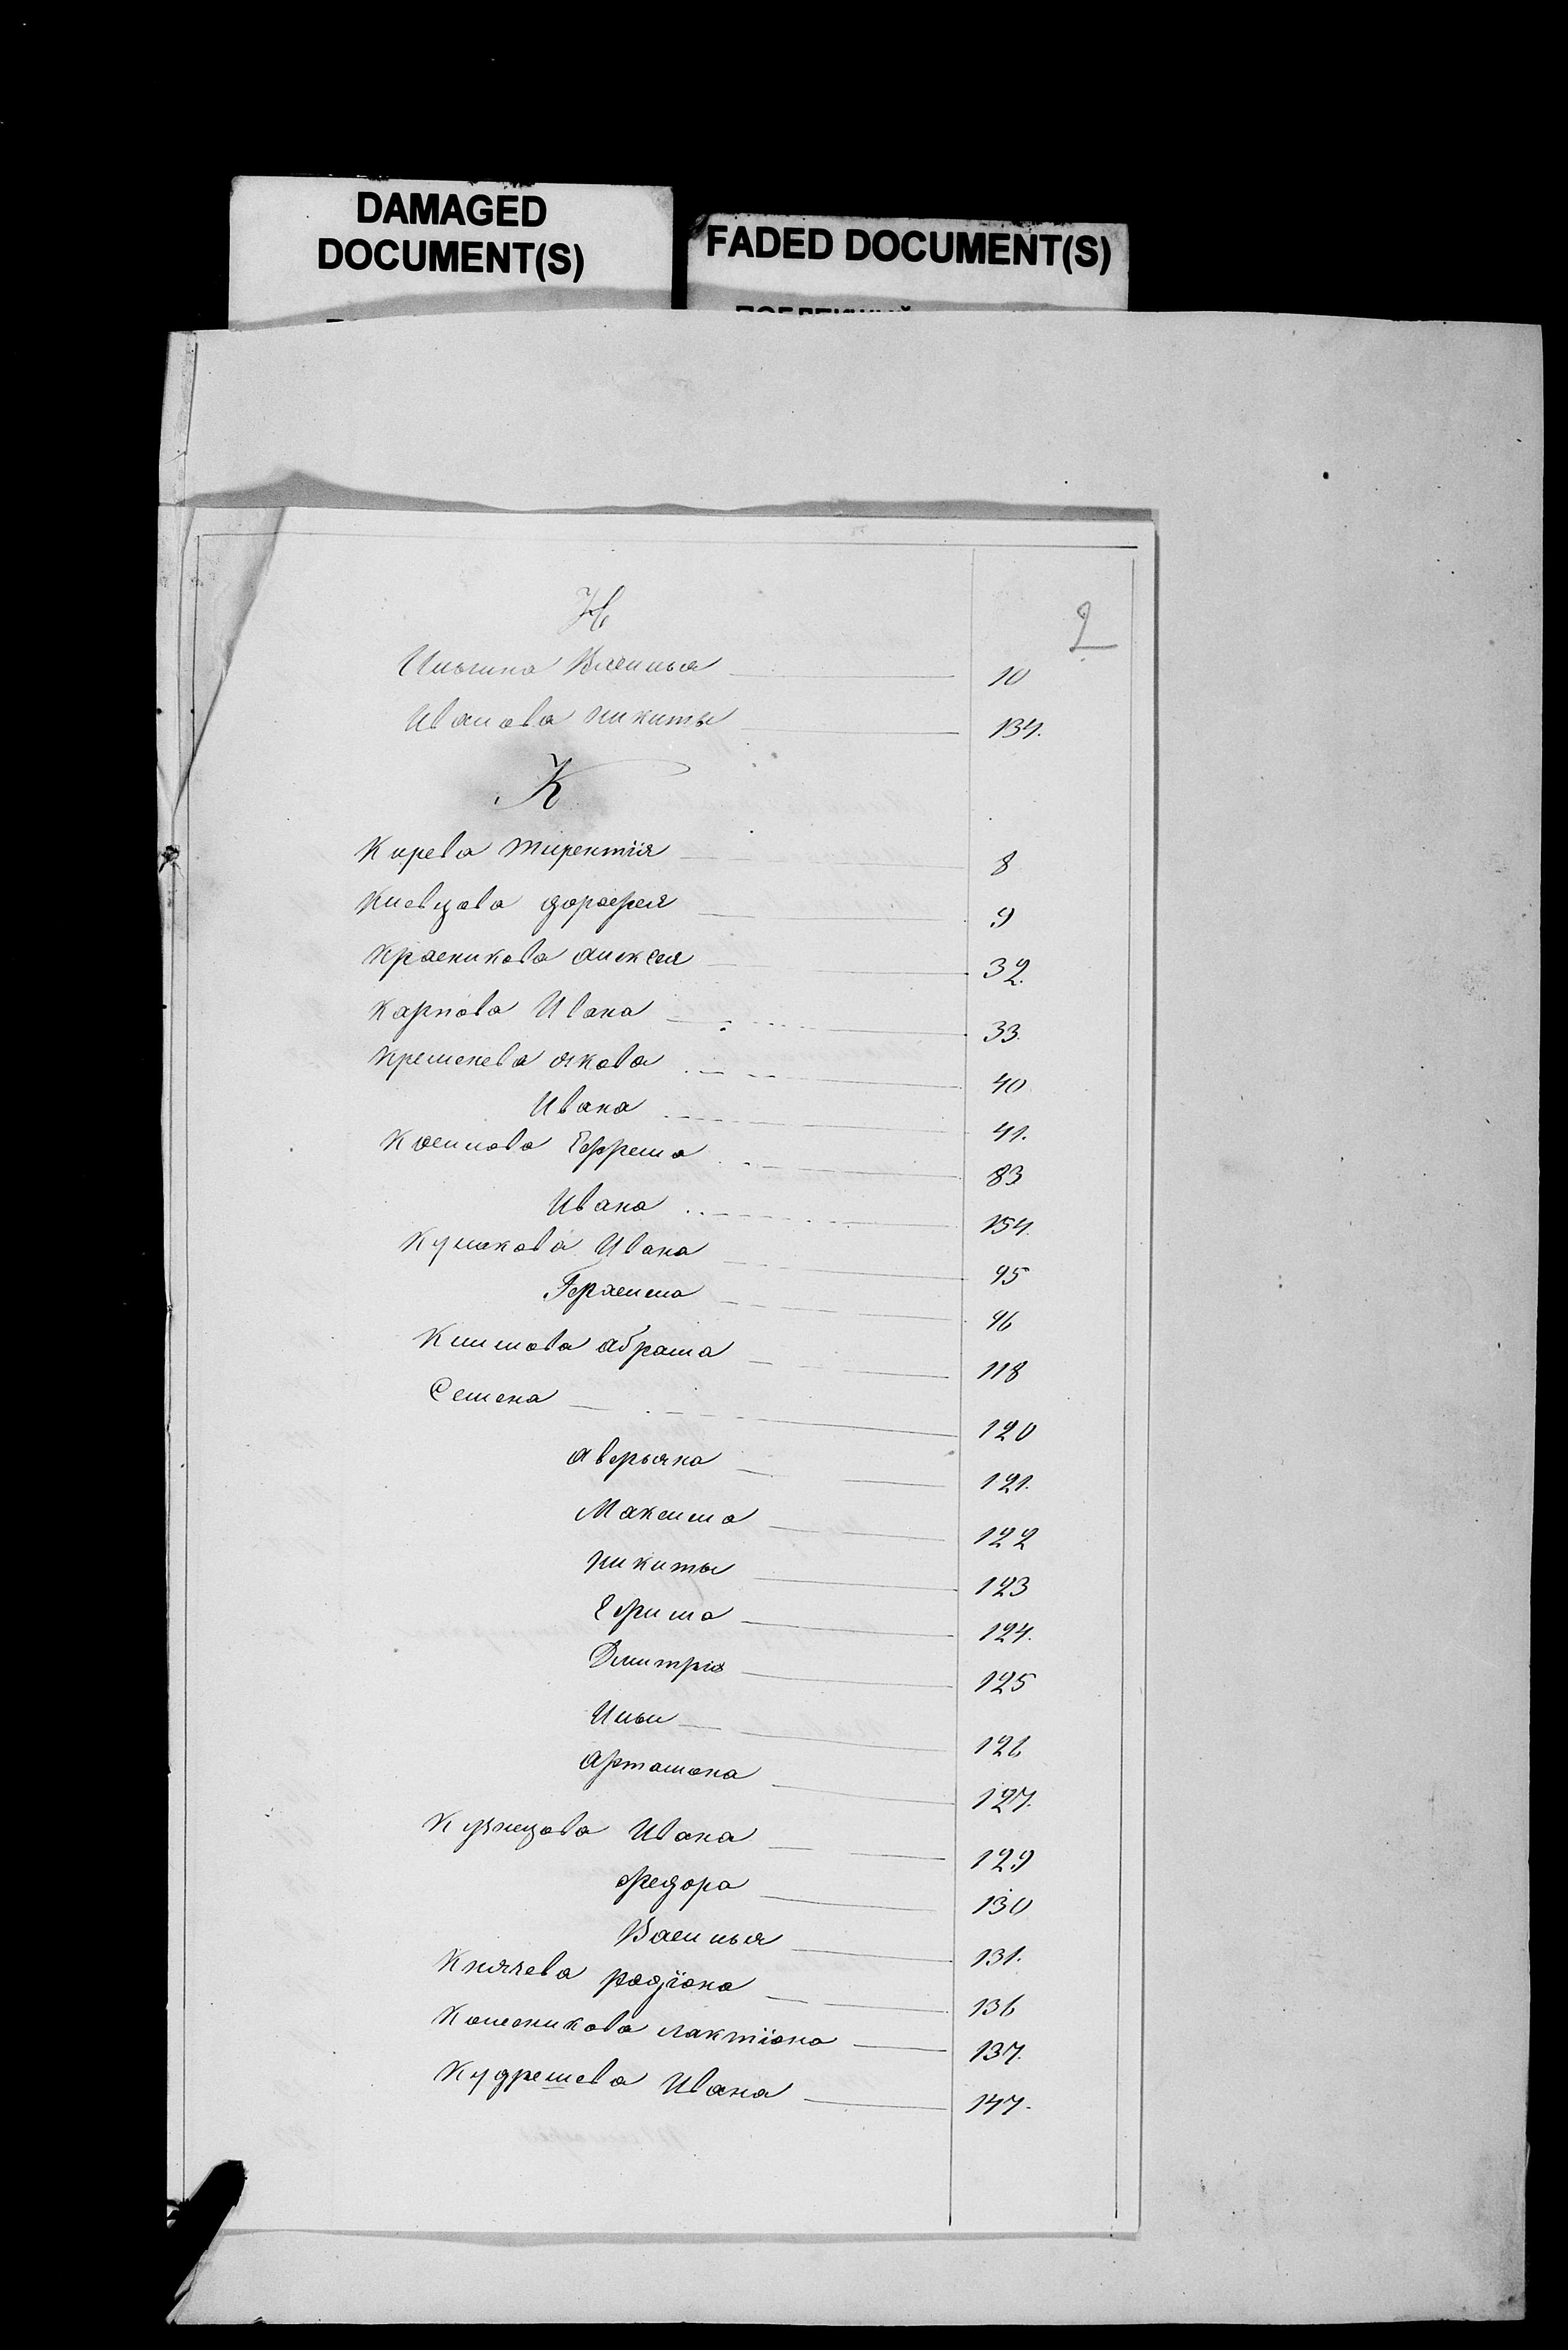 DAMAGED
DOCUMENT(S)
FADED DOCUMENT(S)
2
И
Ильина Василья 10
Иванова никиты 134.
К
Кирева тирентія 8
Киевцова дорофея 9
Красикова алексея 32.
Карпова Ивана 33.
Кременева якова 40
Ивана 41.
Косилова Ефрема 83
Ивана 154.
Кулакова Ивана 95
Герасима 96
Климова абрама 118
Семена 120
аверьяна 121.
Максима 122
никиты 123
Ефима 124.
Дмитрія 125
Ильи 126
Артамона 127.
Кузнецова Ивана 129
Федора 130
Василья 131.
Князева родіона 136
Колесникова лактіона 137.
Кудрешева Ивана 147.